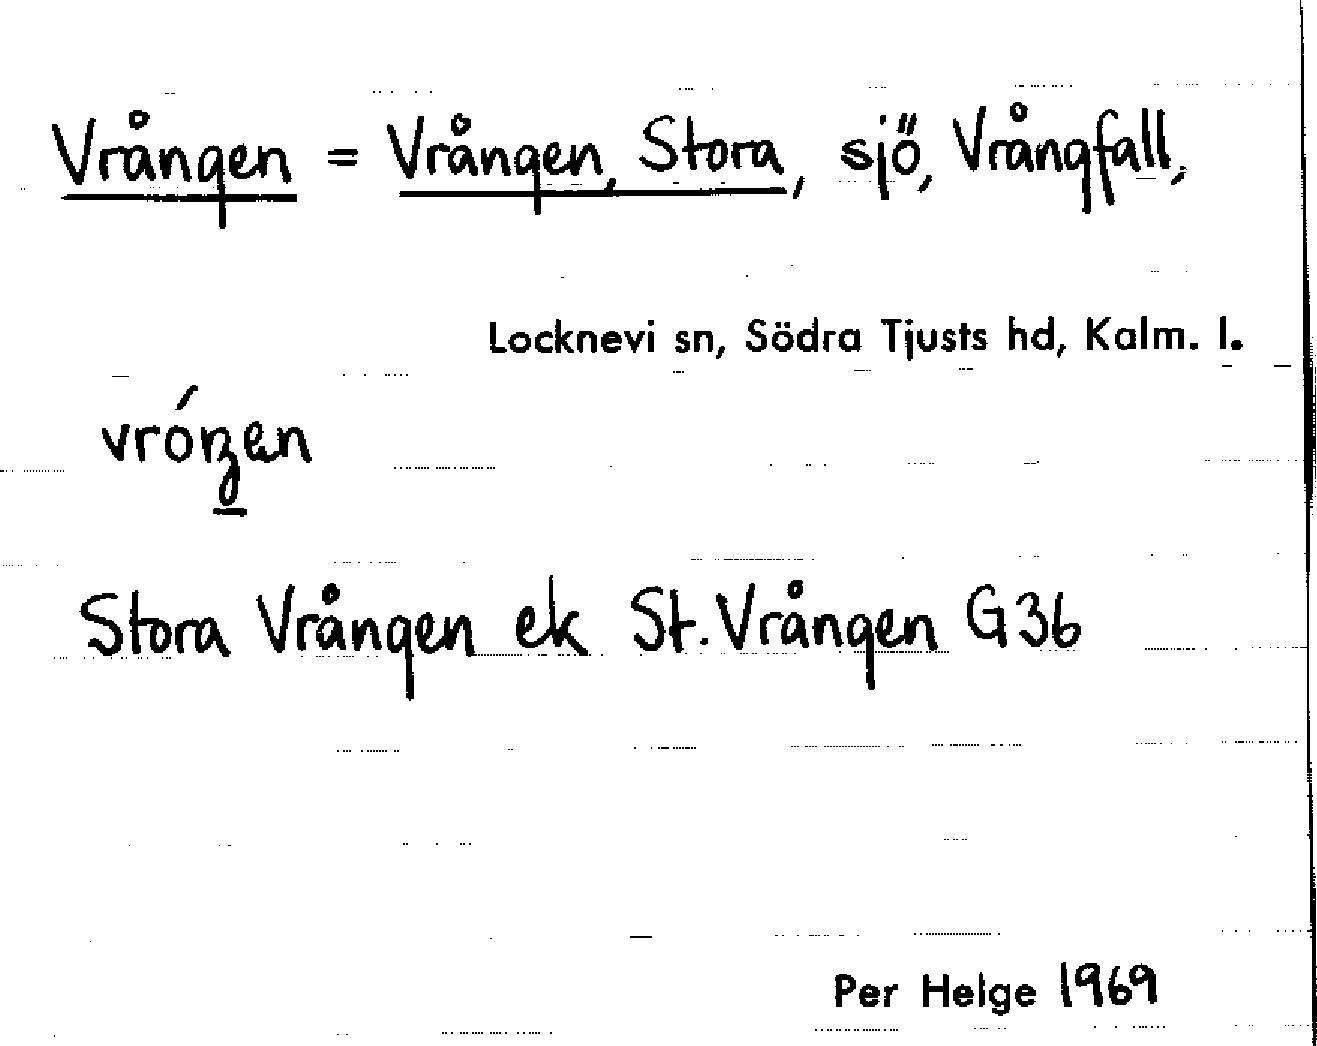 Vrången = Vrången, Stora, sjö, Vrångfall,
Locknevi sn, Södra Tjusts hd, Kalm. l.
Stora Vrången ek St. Vrången G36
Per Helge 1969